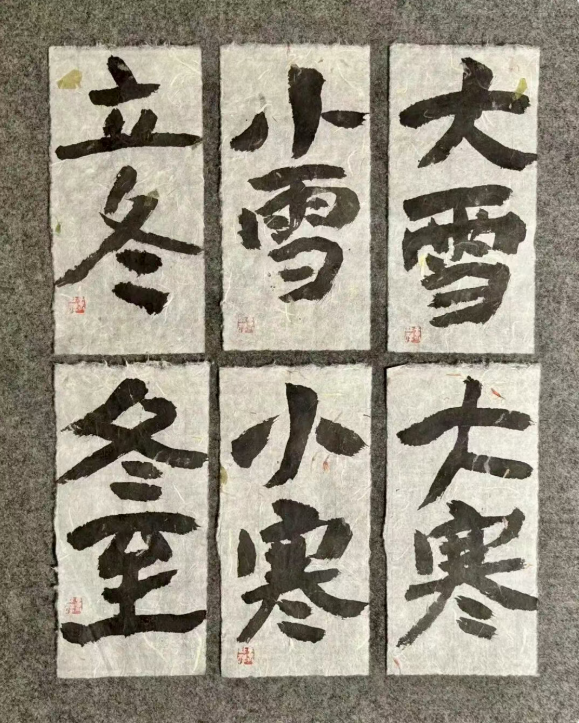 立冬
小雪
大雪
冬至
小寒
大寒